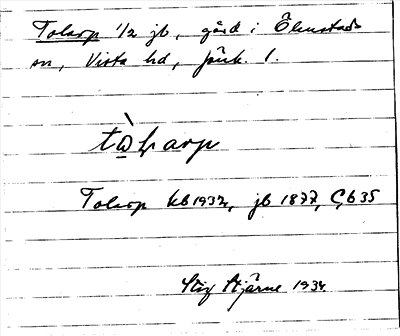 Tolarp 1/2 jb, gård i Ölmstads
sn, Vista hd, Jönk. l.
tòl̥arp
Tolarp kb 1932, jb 1877, C, b 35
Stig Stjärne 1934